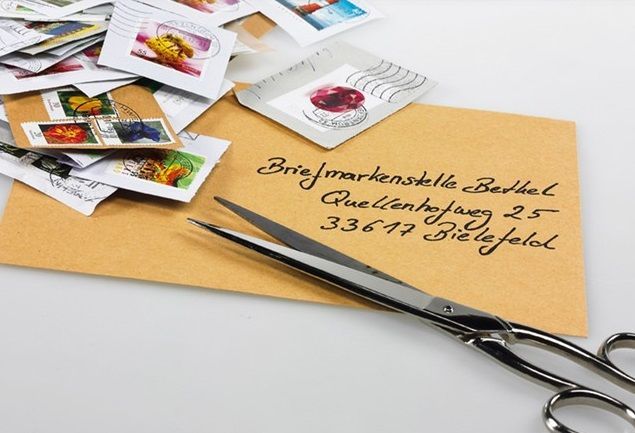 Briefmarkenstelle Bethel
Quellenhofweg 25
33617 Bielefeld
55